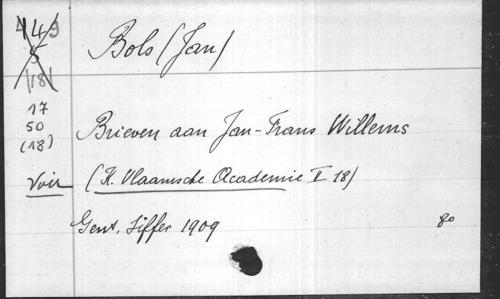 449
5
(18)
Bols (Jan)
17
50
(18)
Brieven aan Jan-Frans Willems
Voir (K. Vlaamsche Academie II 18)
Gent, Siffer 1909 80